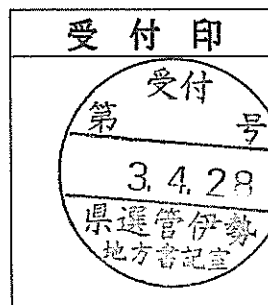 受付印
受付
第 号
3.4.28
県選管伊勢
地方書記室